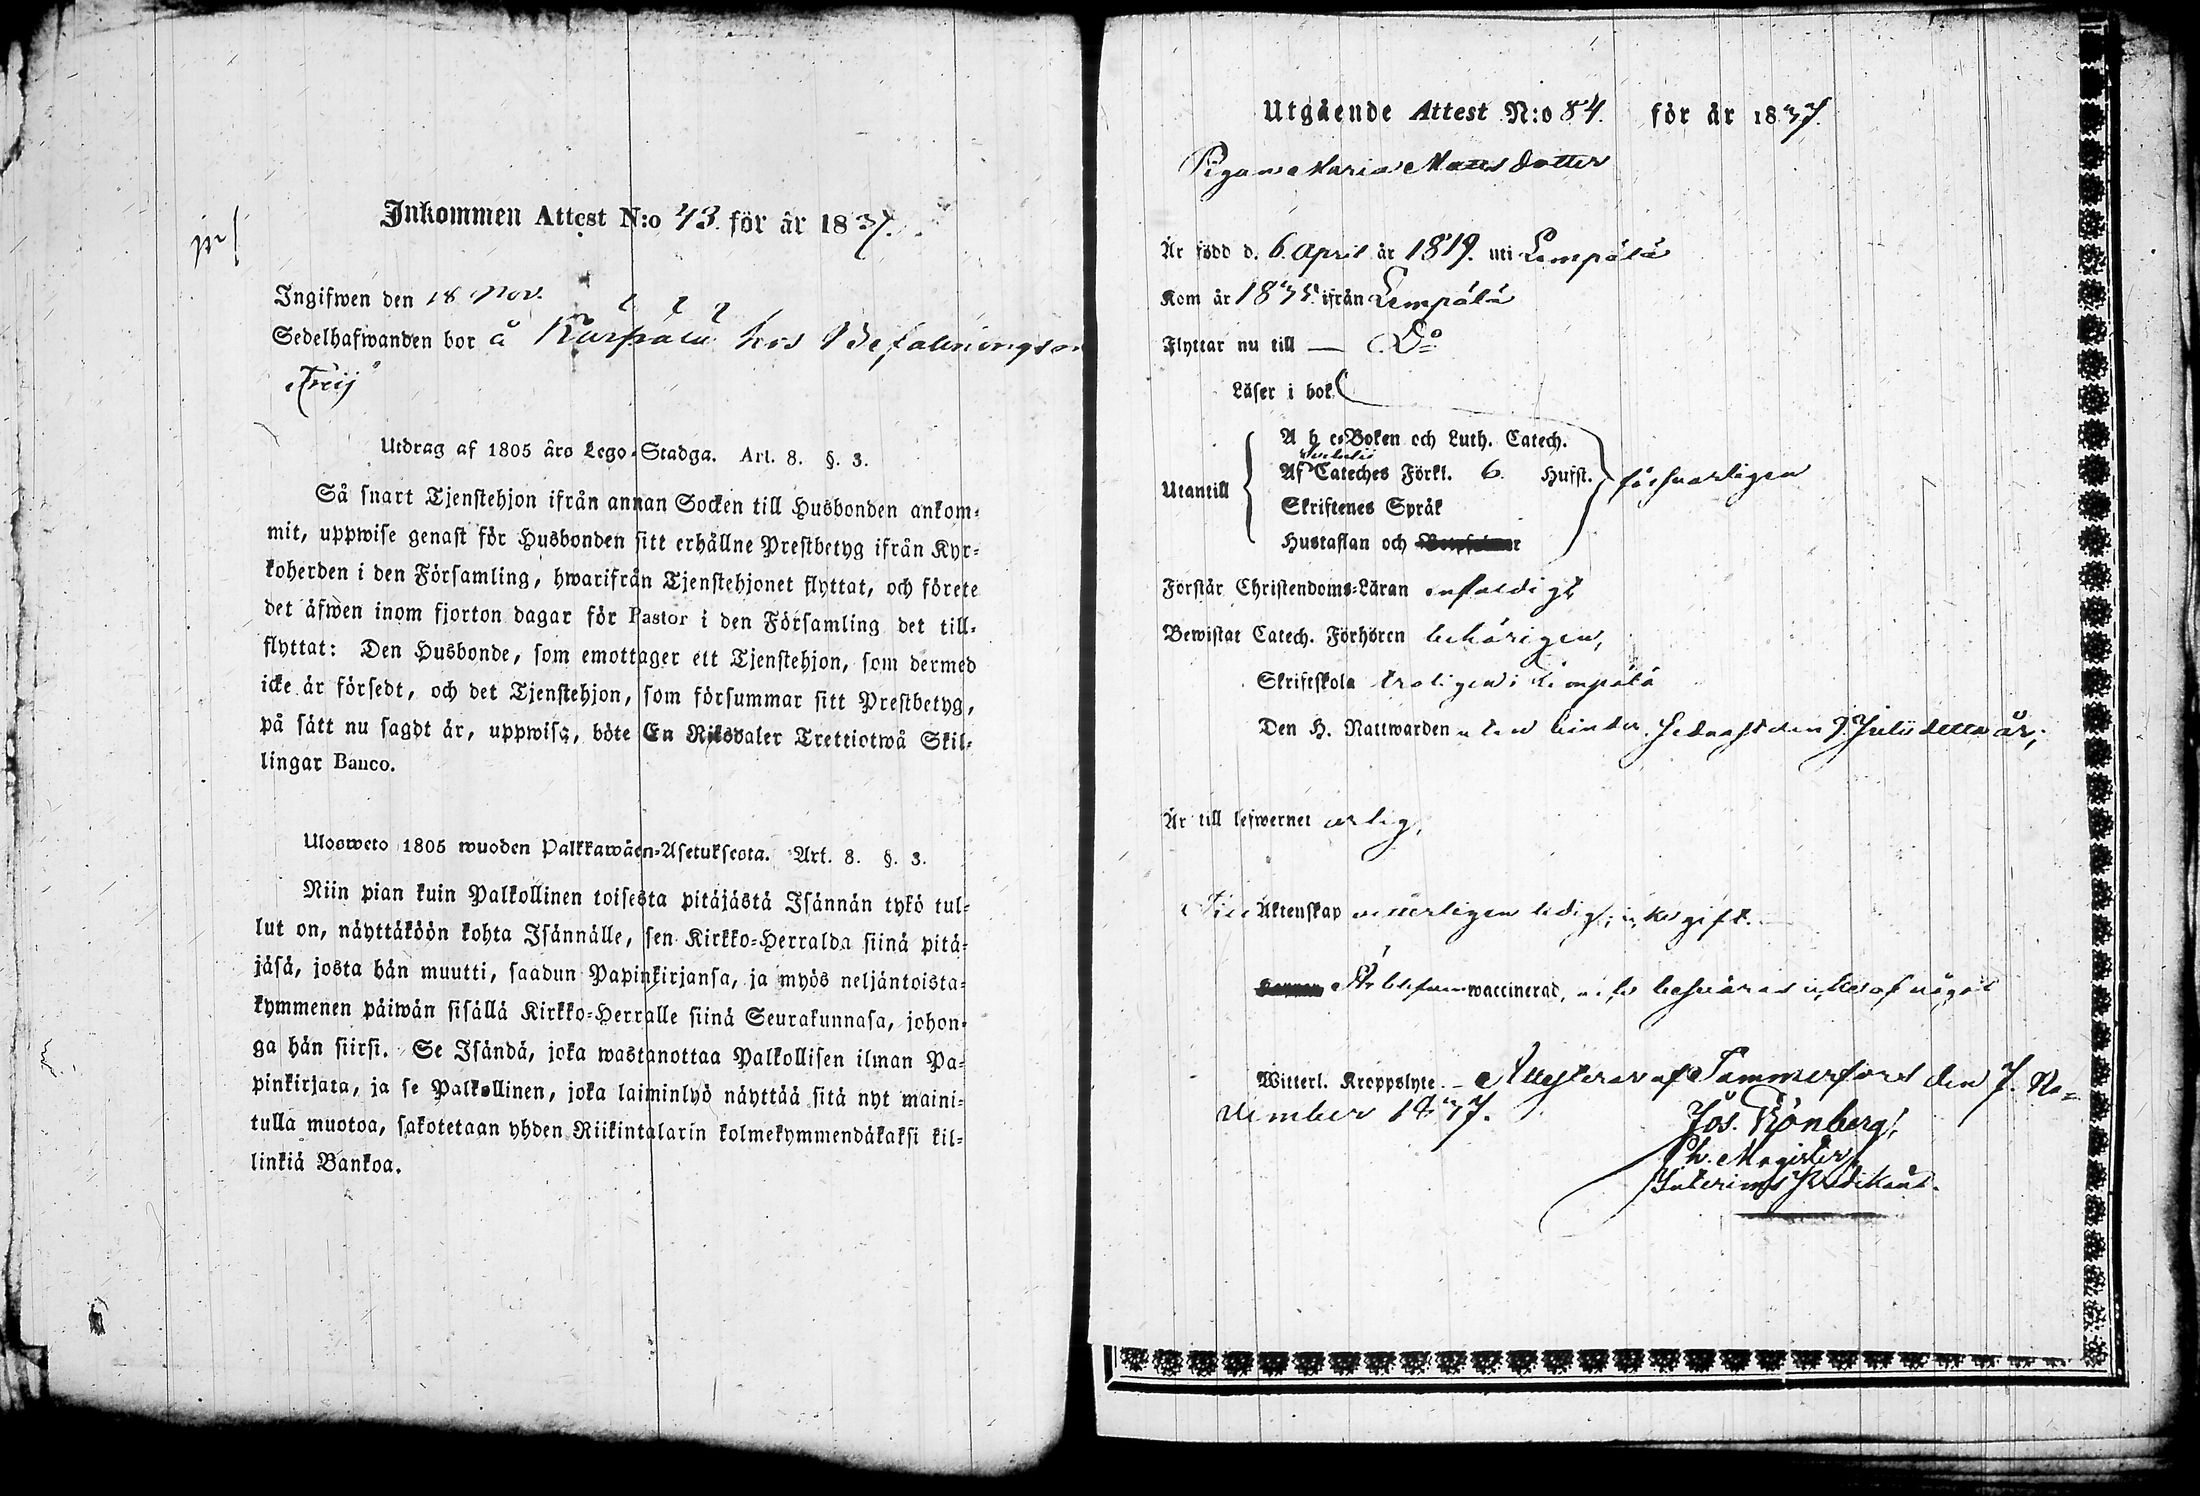 Inkommen Attest N:o 43. för år 1837.
Ingifwen den 18 Nov.
Sedelhafwanden bor å Kurpala hos Befallningsm
Freij
Utdrag af 1805 års Lego-Stadga. Art. 8. §. 3.
Så snart Tjenstehjon ifrån annan Socken till Husbonden ankom-
mit, uppwise genast för Husbonden sitt erhållne Prestbetyg ifrån Kyr-
koherden i den Församling, hwarifrån Tjenstehjonet flyttat, och förete
det äfwen inom fjorton dagar för Pastor i den Församling det till-
flyttat: Den Husbonde, som emottager ett Tjenstehjon, som dermed
icke är försedt, och det Tjenstehjon, som försummar sitt Prestbetyg,
på sätt nu sagdt är, uppwisa, böte En Riksdaler Trettiotwå Skil-
lingar Banco.
Ulosweto 1805 wuoden Palkkawäen-Asetuksesta. Art. 8. §. 3.
Niin pian kuin Palkollinen toisesta pitäjästä Isännän tykö tul-
lut on, näyttäköön kohta Isännälle, sen Kirkko-Herralda siinä pitä-
jäsä, josta hän muutti, saadun Papinkirjansa, ja myös neljäntoista-
kymmenen päiwän sisällä Kirkko-Herralle siinä Seurakunnasa, johon-
ga hän siirsi. Se Isändä, joka wastanottaa Palkollisen ilman Pa-
pinkirjata, ja se Palkollinen, joka laiminlyö näyttää sitä nyt maini-
tulla muotoa, sakotetaan yhden Riikintalarin kolmekymmendäkaksi kil-
linkiä Bankoa.
Utgående Attest N:o 84. för år 1837.
Pigan Maria Mattsdotter
Är född d. 6. April år 1819. uti Lempälä
Kom år 1835. ifrån Lempälä
Flyttar nu till — Do
Läser i bok
Utantill
A b c-Boken och Luth. Catech.
Af Cateches Förkl. 6. Hufst.
Skriftenes Språk
Hustaflan och
försvarligen
Förstår Christendoms-Läran enfaldigt
Bewistat Catech. Förhören behörigen,
Skriftskola troligen i Lempälä
Den H. Nattwarden utan hinder. Sednast den 9. Julii detta år;
Är till lefwernet ärlig,
Till Äktenskap witterligen ledig; icke gift.
Är blifwen waccinerad, icke besvärad icke af något
Witterl. Kroppslyte. – Attesterar af Tammerfors den 7. No-
vember 1837.
Jos. Rönberg,
Ph. Magister,
Interims Predikant.